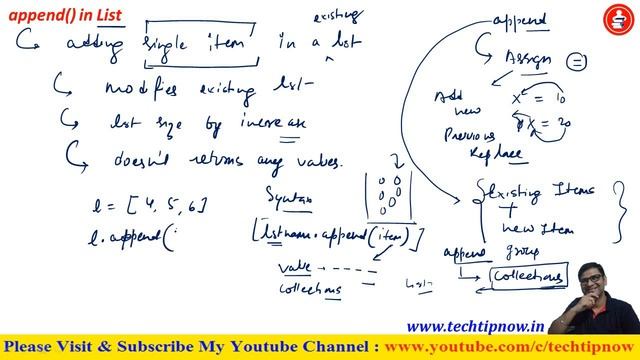 append() in List
existing
adding single item in a list
modifies existing list
list size by increase
doesn't returns any values.
l = [4, 5, 6]
l.append(
Syntax
[listname.append(item)]
value
collections
list
append
Assign =
Add new
x = 10
x = 20
Previous Replace
existing Items
+
new Item
append group
Collections
www.techtipnow.in
Please Visit & Subscribe My Youtube Channel : www.youtube.com/c/techtipnow